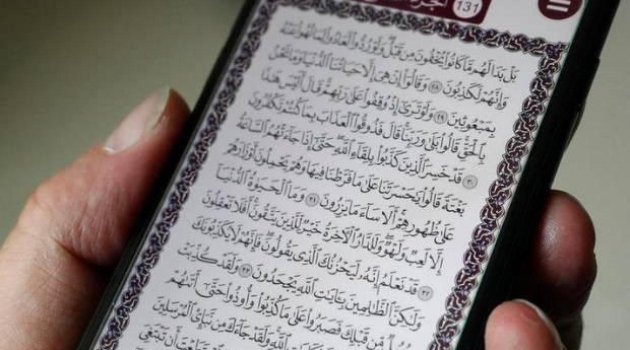 131
بَلْ بَدَا لَهُم مَّا كَانُوا۟ يُخْفُونَ مِن قَبْلُ وَلَوْ رُدُّوا۟ لَعَادُوا۟ لِمَا نُهُوا۟ عَنْهُ
وَإِنَّهُمْ لَكَٰذِبُونَ ٢٨ وَقَالُوٓا۟ إِنْ هِىَ إِلَّا حَيَاتُنَا ٱلدُّنْيَا وَمَا نَحْنُ
بِمَبْعُوثِينَ ٢٩ وَلَوْ تَرَىٰٓ إِذْ وُقِفُوا۟ عَلَىٰ رَبِّهِمْ قَالَ أَلَيْسَ هَٰذَا
بِٱلْحَقِّ قَالُوا۟ بَلَىٰ وَرَبِّنَا قَالَ فَذُوقُوا۟ ٱلْعَذَابَ بِمَا كُنتُمْ تَكْفُرُونَ
٣٠ قَدْ خَسِرَ ٱلَّذِينَ كَذَّبُوا۟ بِلِقَآءِ ٱللَّهِ حَتَّىٰٓ إِذَا جَآءَتْهُمُ ٱلسَّاعَةُ
بَغْتَةً قَالُوا۟ يَٰحَسْرَتَنَا عَلَىٰ مَا فَرَّطْنَا فِيهَا وَهُمْ يَحْمِلُونَ أَوْزَارَهُمْ
عَلَىٰ ظُهُورِهِمْ أَلَا سَآءَ مَا يَزِرُونَ ٣١ وَمَا ٱلْحَيَوٰةُ ٱلدُّنْيَآ
إِلَّا لَعِبٌ وَلَهْوٌ وَلَلدَّارُ ٱلْـَٔاخِرَةُ خَيْرٌ لِّلَّذِينَ يَتَّقُونَ أَفَلَا تَعْقِلُونَ
٣٢ قَدْ نَعْلَمُ إِنَّهُۥ لَيَحْزُنُكَ ٱلَّذِى يَقُولُونَ فَإِنَّهُمْ لَا يُكَذِّبُونَكَ
وَلَٰكِنَّ ٱلظَّٰلِمِينَ بِـَٔايَٰتِ ٱللَّهِ يَجْحَدُونَ ٣٣ وَلَقَدْ كُذِّبَتْ
مِّن قَبْلِكَ فَصَبَرُوا۟ عَلَىٰ مَا كُذِّبُوا۟ وَأُوذُوا۟ حَتَّىٰٓ أَتَىٰهُمْ
ٱللَّهِ وَلَقَدْ جَآءَكَ مِن نَّبَإِى۟ ٱلْمُرْسَلِينَ
أَن تَبْتَغِىَ